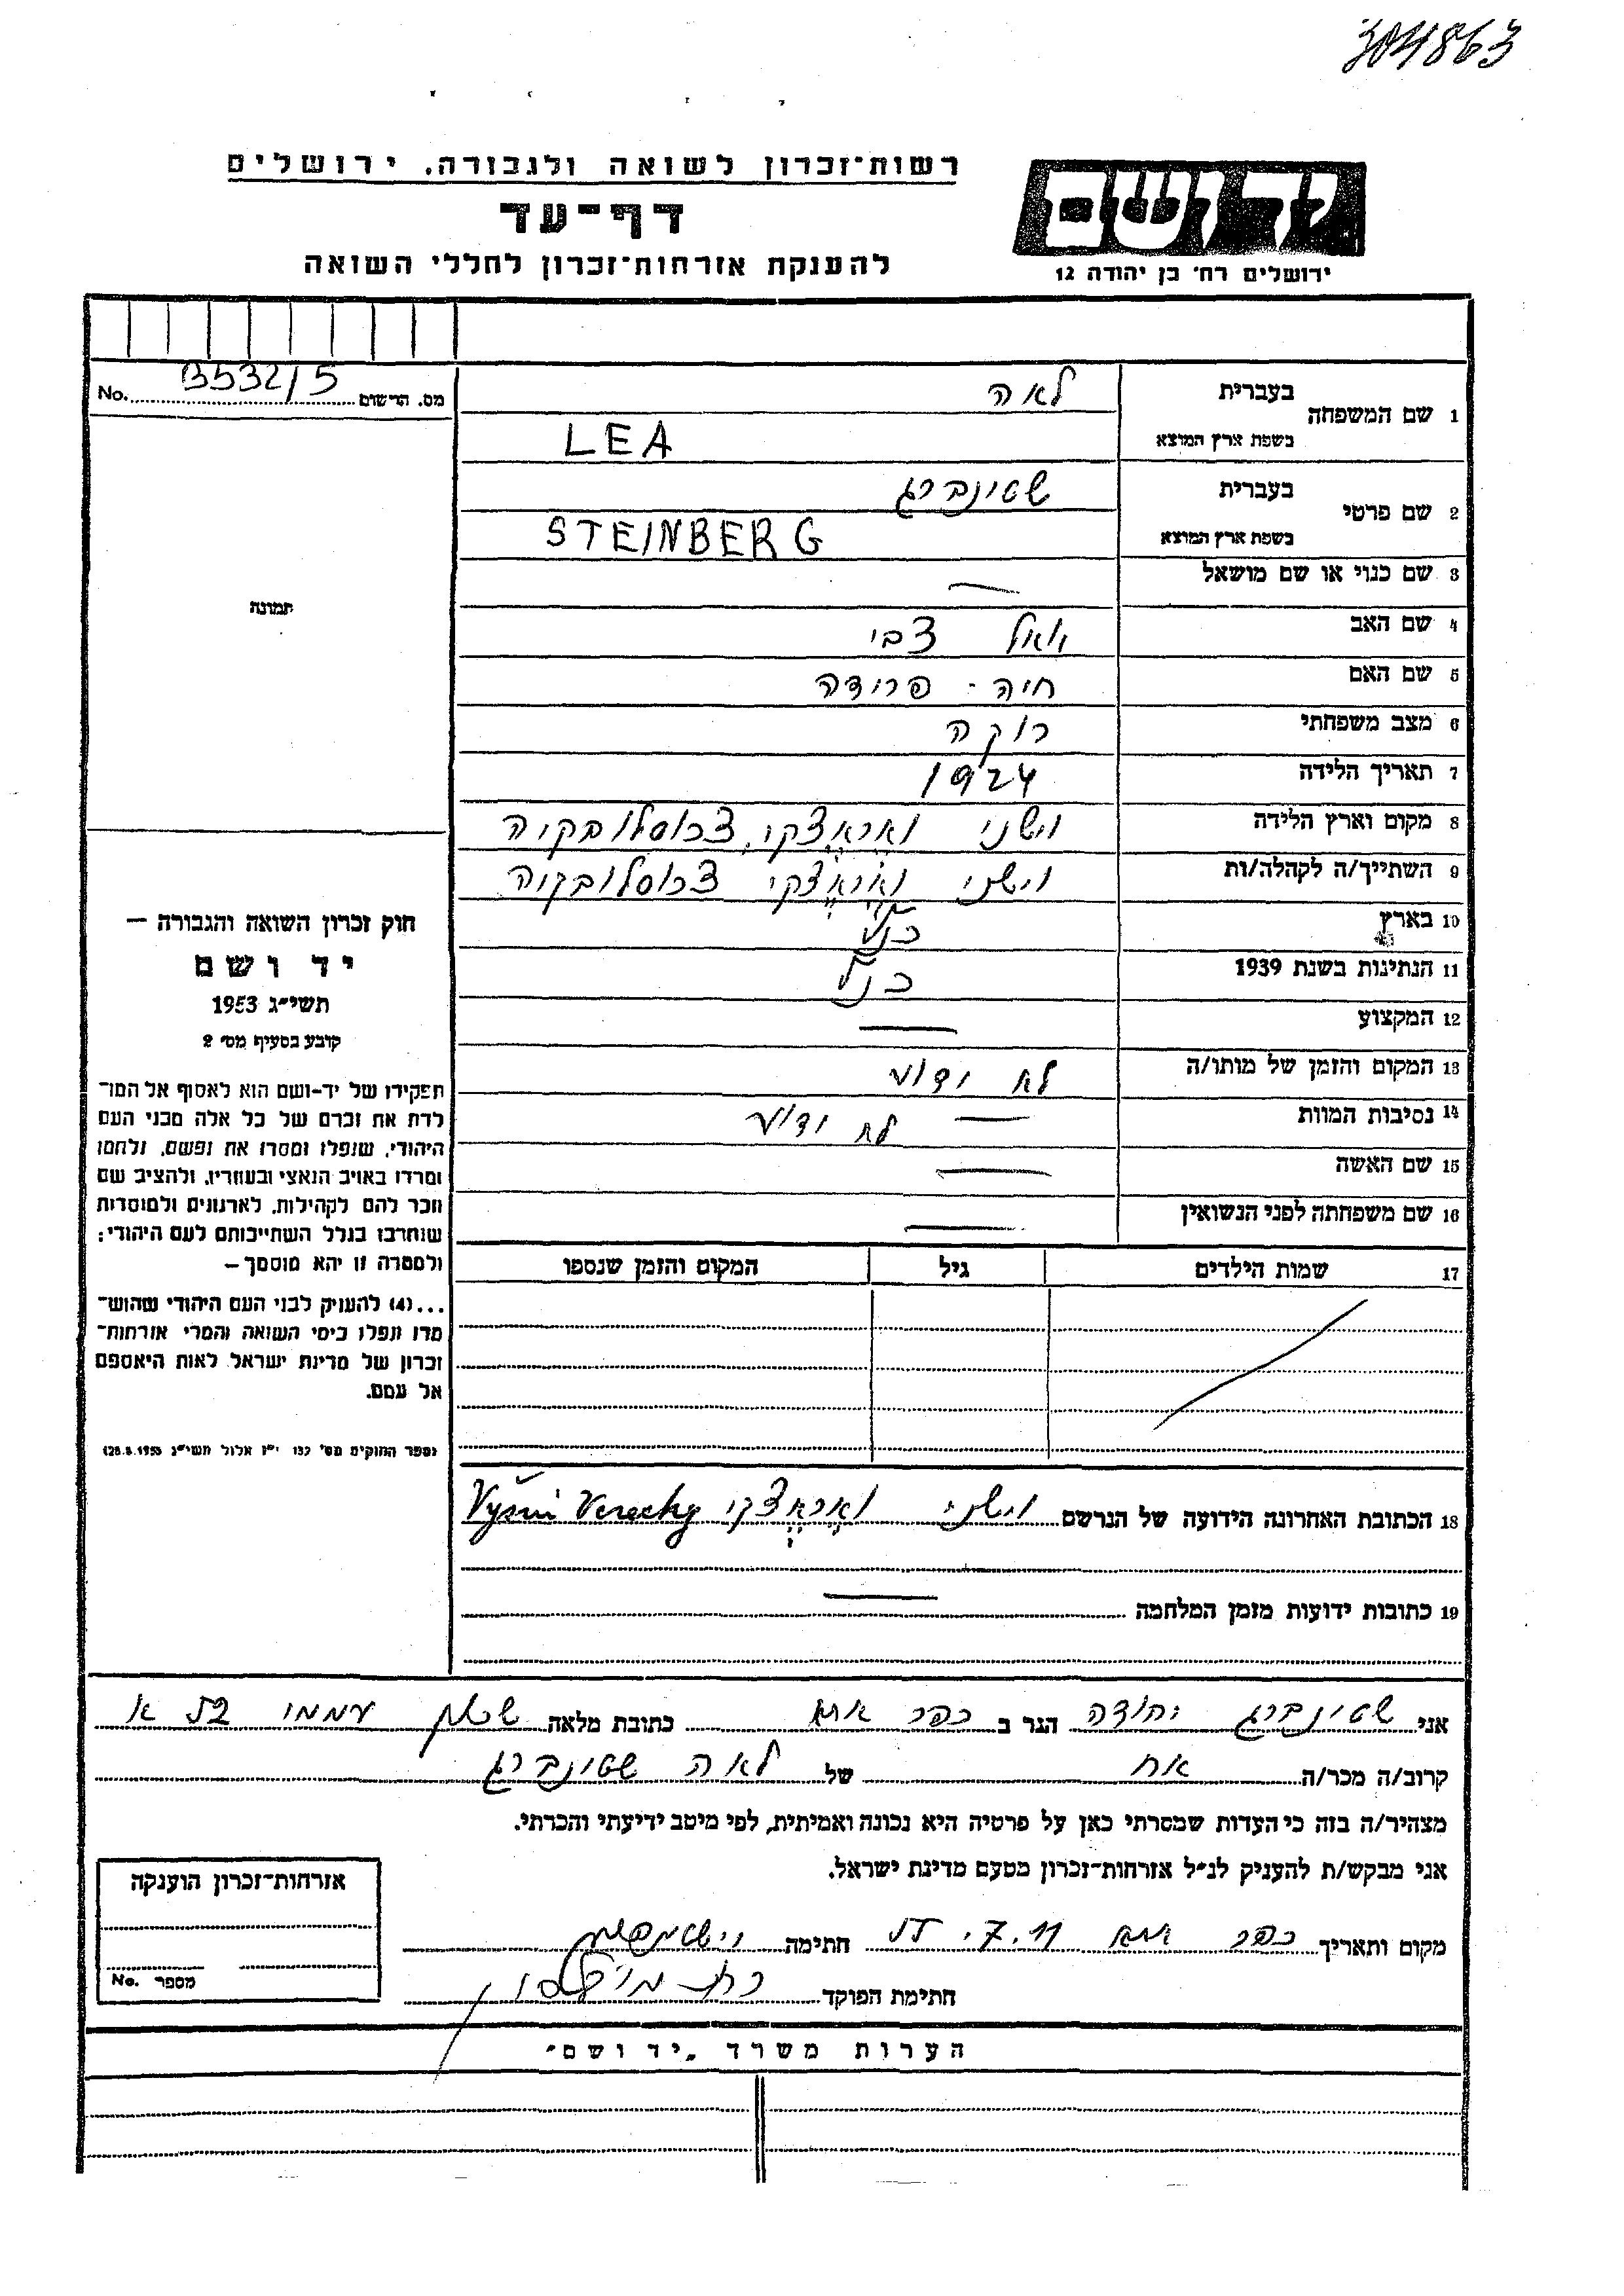 304863
רשות־זכרון לשואה ולגבורה, ירושלים
יד ושם
דף־עד
להענקת אזרחות־זכרון לחללי השואה
ירושלים רח׳ בן יהודה 12
מס. הרשום B532/5 No.
1 שם המשפחה בעברית לאה
בשפת ארץ המוצא LEA
2 שם פרטי בעברית שטינברג
בשפת ארץ המוצא STEINBERG
3 שם כנוי או שם מושאל —
תמונה
4 שם האב יואל צבי
5 שם האם חיה - פרידה
6 מצב משפחתי רוקה
7 תאריך הלידה 1924
8 מקום וארץ הלידה וישני וֶרֶצקי, צכוסלובקיה
9 השתייך/ה לקהלה/ות וישני וֶרֶצקי צכוסלובקיה
10 בארץ כנ״ל
11 הנתינות בשנת 1939 כנ״ל
12 המקצוע —
13 המקום והזמן של מותו/ה לא ידוע
14 נסיבות המוות — לא ידוע
15 שם האשה —
16 שם משפחתה לפני הנשואין —
17 שמות הילדים גיל המקום והזמן שנספו
חוק זכרון השואה והגבורה —
יד ושם
תשי״ג 1953
קובע בסעיף מס׳ 2
תפקידו של יד-ושם הוא לאסוף אל המו־
לדת את זכרם של כל אלה מבני העם
היהודי, שנפלו ומסרו את נפשם, נלחמו
ומרדו באויב הנאצי ובעוזריו, ולהציב שם
וזכר להם לקהילות, לארגונים ולמוסדות
שנחרבו בגלל השתייכותם לעם היהודי;
ולמטרה זו יהא מוסמך —
...(4) להעניק לבני העם היהודי שהוש־
מדו ונפלו בימי השואה והמרי אזרחות־
זכרון של מדינת ישראל לאות היאספם
אל עמם.
(ספר החוקים מס׳ 132 י״ז אלול תשי״ג 28.8.1953)
18 הכתובת האחרונה הידועה של הנרשם וישני וֶרֶצקי Vyšní Verecky
19 כתובות ידועות מזמן המלחמה —
אני שטינברג יהודה הגר ב כפר אתא כתובת מלאה שכון עממי 52 א
קרוב/ה מכר/ה אח של לאה שטינברג
מצהיר/ה בזה כי העדות שמסרתי כאן על פרטיה היא נכונה ואמיתית, לפי מיטב ידיעתי והכרתי.
אני מבקש/ת להעניק לנ״ל אזרחות-זכרון מטעם מדינת ישראל.
אזרחות-זכרון הוענקה
מקום ותאריך כפר אתא 11.7. חתימה
מספר No.
חתימת הפוקד
הערות משרד „יד ושם״